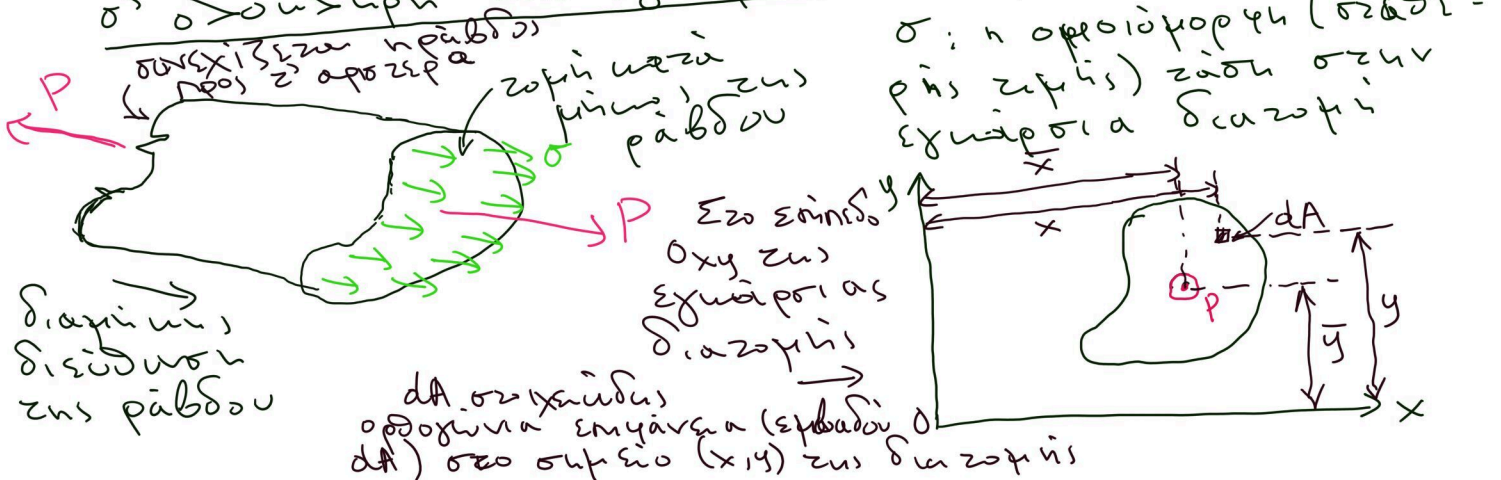 σ' ολόκληρη
συνεχίζεται η ράβδος
προς τ' αριστερά
P
τομή κατά
μήκος της
ράβδου
σ
P
διαμήκης
διεύθυνση
της ράβδου
σ: η ομοιόμορφη (σταθε-
ρής τιμής) τάση στην
εγκάρσια διατομή
Στο επίπεδο
Oxy της
εγκάρσιας
διατομής
y
x̄
x
dA
P
ȳ
y
O
x
dA στοιχειώδης
ορθογώνια επιφάνεια (εμβαδού
dA) στο σημείο (x,y) της διατομής